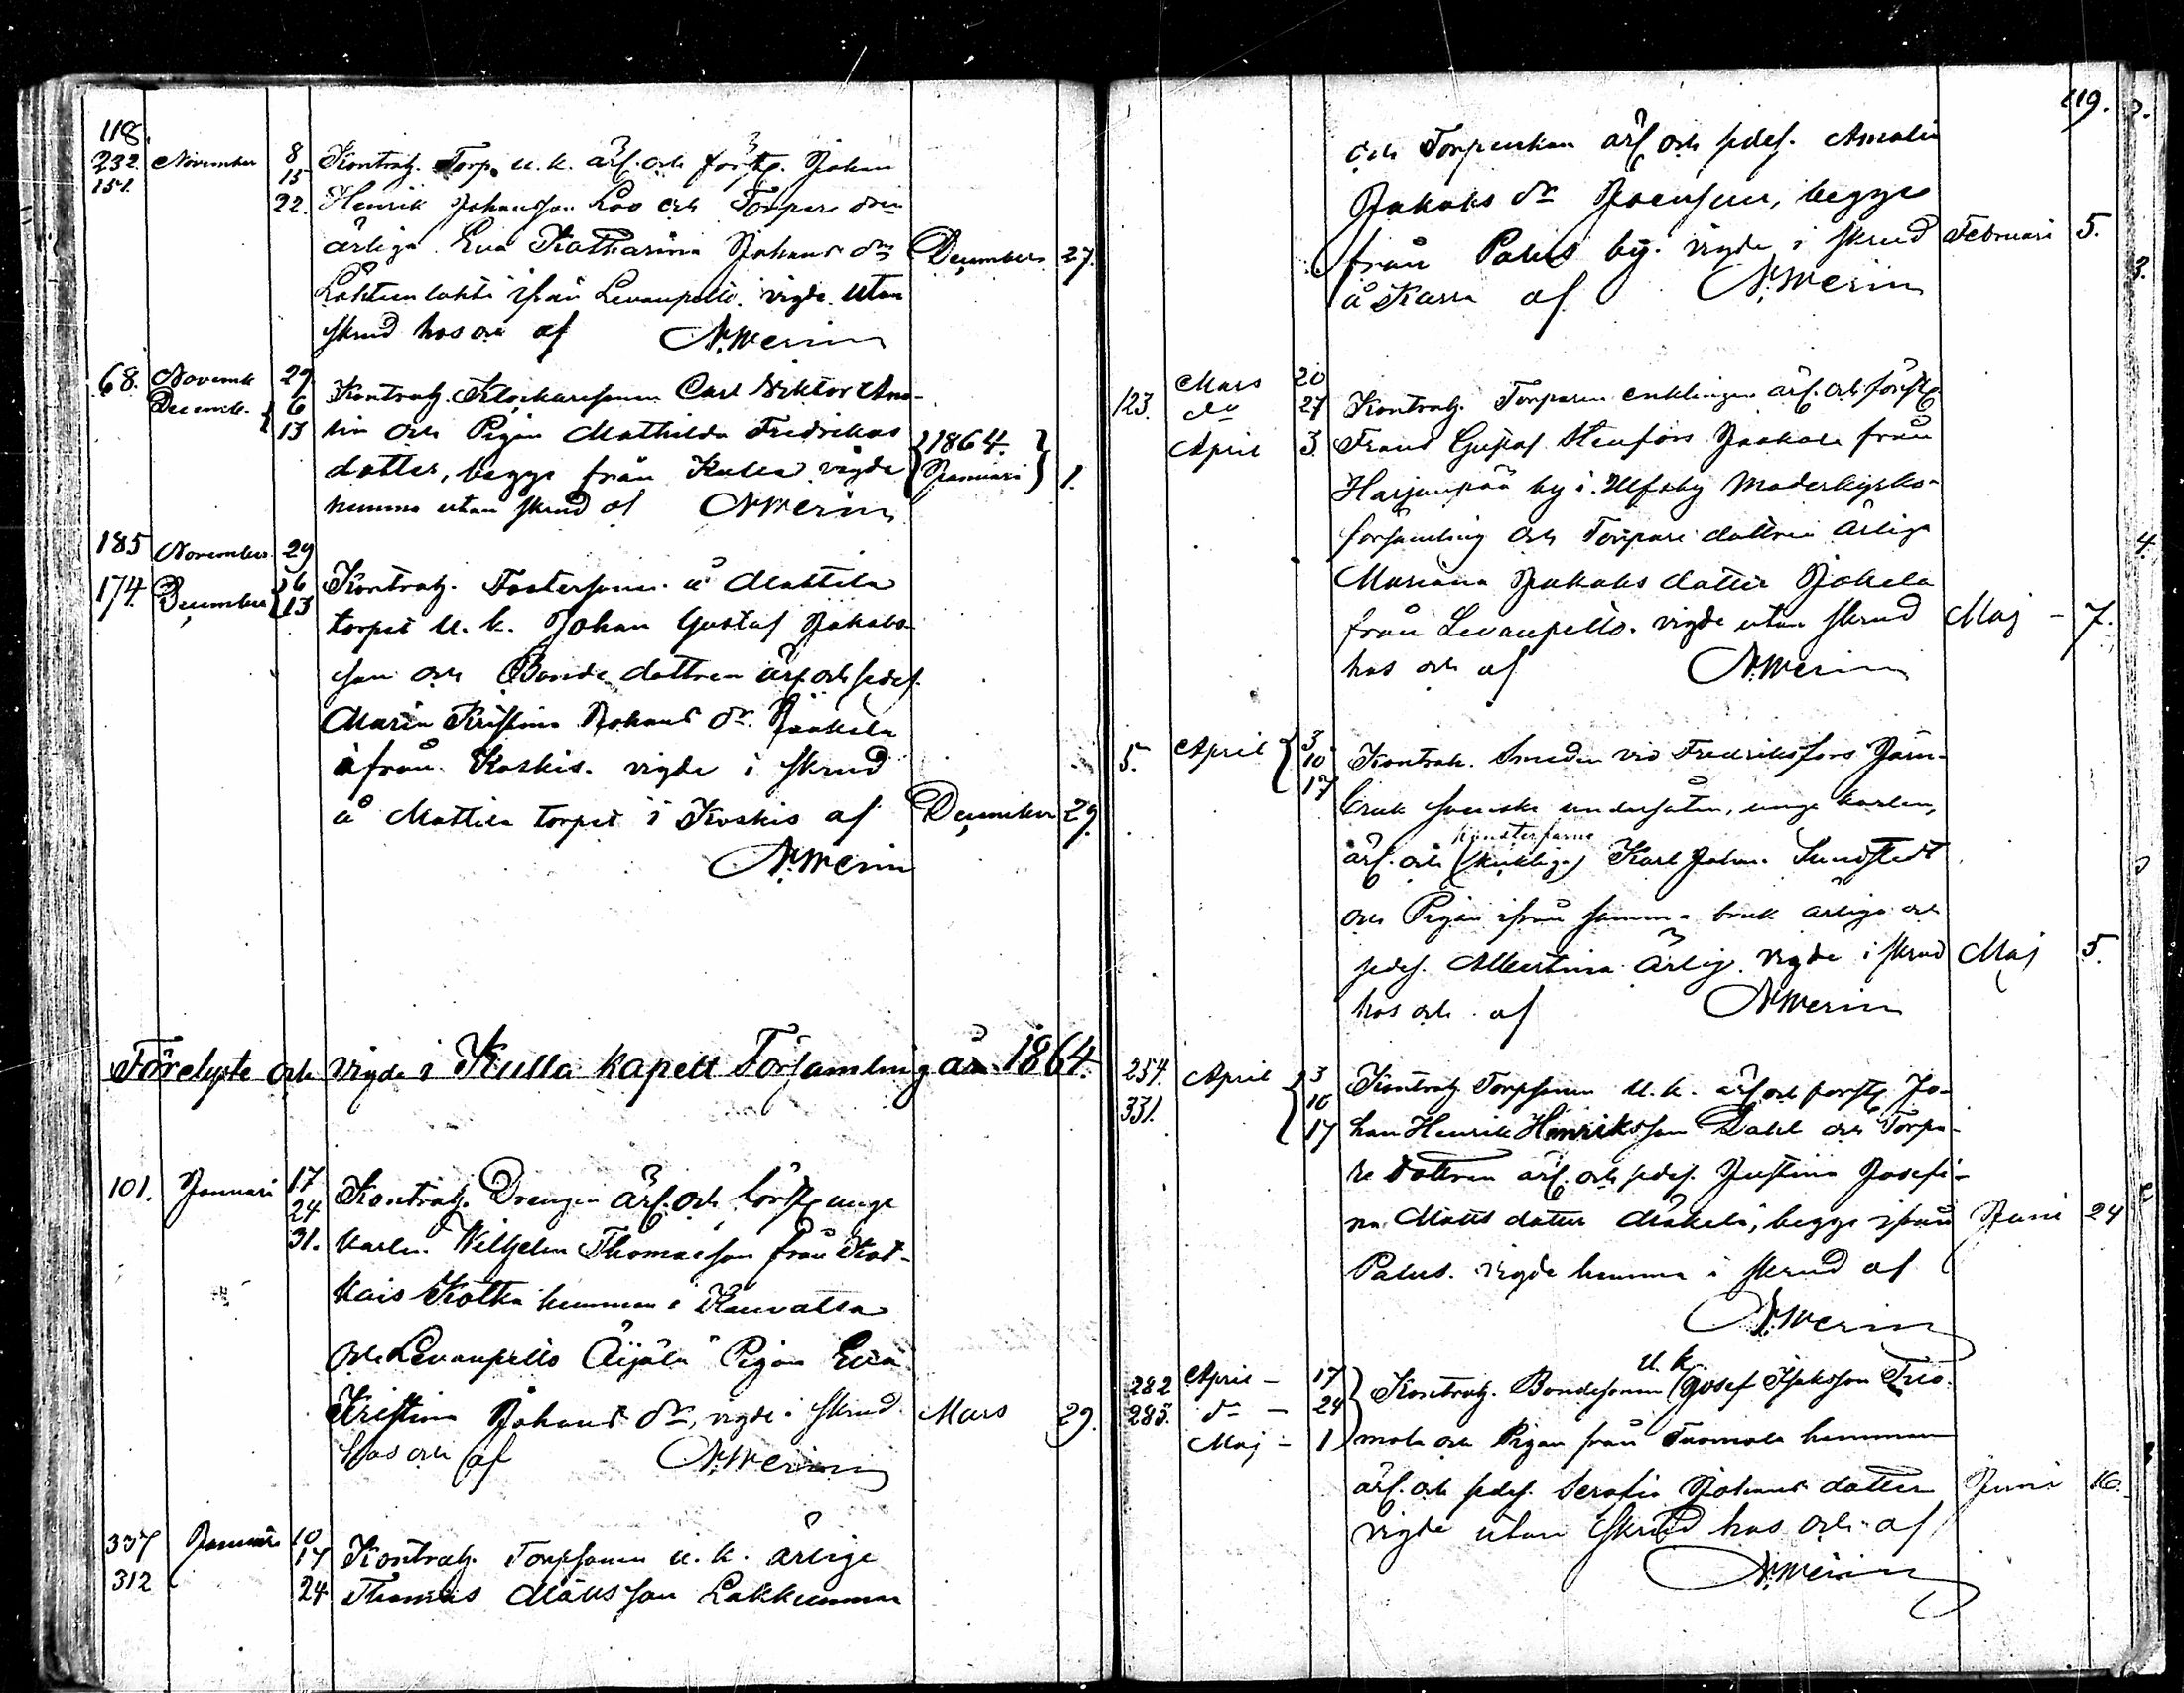 118.
232. November 8 Kontrah. Torp. u. k. ärl. och förstg. Johan
151. 15
22. Henrik Johansson Loo och Torpare dren
ärliga Eva Katharina Johans dr December 27.
ifrån Levanpelto. vigde utan
skrud hos och af N. Merin
68. Novemb. 29. Kontrah. Klockaresonen Carl Viktor
Decemb. 6
13 och Pigan Mathilda Fredrikas
dotter, begge från Kulla vigde 1864. Januari 1.
hemma utan skrud af N Merin
185 November 29
174. December 6 Kontrah. Fostersonen å Mattila
13
torpet u. k. Johan Gustaf Jakobs
son och Bonde dottren ärl. och sedes.
Maria Kristina Johans dr Jaakola
ifrån Koskis. vigde i skrud
å Mattila torpet i Koskis af December 29.
N. Merin
Förelyste och vigde i Kulla kapell Församling år 1864.
101. Januari 17 Kontrah. Drengen ärl. och förstg unge
24
31. karlen Wilhelm Thomasson från Kot-
kais Kotka hemman i Kauvatsa
och Levanpelto Äijälä Pigan Eva
Kristina Johans dr, vigde i skrud Mars 29.
hos och af N. Merin
337 Januari 10
312 17 Kontrah. Torpsonen u. k. ärlige
24 Thomas Matts son
119.
och Torpenkan ärl och sedes. Amalia
Jakobs dr begge
från Palus by. vigde i skrud Februari 5.
å Karra af N. Merin
Mars 20
123. do 27 Kontrah. Torparen enklingen ärl. och förstg
April 3. Frans Gustaf Stenfors Jaakola från
Harjunpää by i Ulfsby Moderkyrko-
församling och Torpare dottren ärliga
Mariana Jakobs dotter Jokela
från Levanpelto. vigde utan skrud Maj - 7.
hos och af N. Merin
5. April 3
10 Kontrah. Smeden vid Fredriksfors Jern-
17
bruk svenske undersåten, unge karlen,
konsterfarne
ärl. och (skicklige) Karl Johan Sundstedt
och Pigan ifrån samma bruk ärliga och
sedes. Albertina Ärlig. vigde i skrud Maj 5.
hos och af N Merin
254. April 3 Kontrah Torpsonen u. k. ärl och förstg Jo-
331. 10
17 han Henrik Henriksson Dahl och Torpa-
re dottren ärl. och sedes. Justina Josefi-
na Matts dotter Mäkelä, begge ifrån Juni 24
Palus. vigde hemma i skrud af
N. Merin
u. k.
282 April - 17 Kontrah. Bondesonen Josef Isaksson Tuo-
285. do - 24
Maj - 1 mola och Pigan från Tuomola hemman
ärl. och sedes. Serafia Johans dotter Juni 16.
vigde utan skrud hos och af
N. Merin